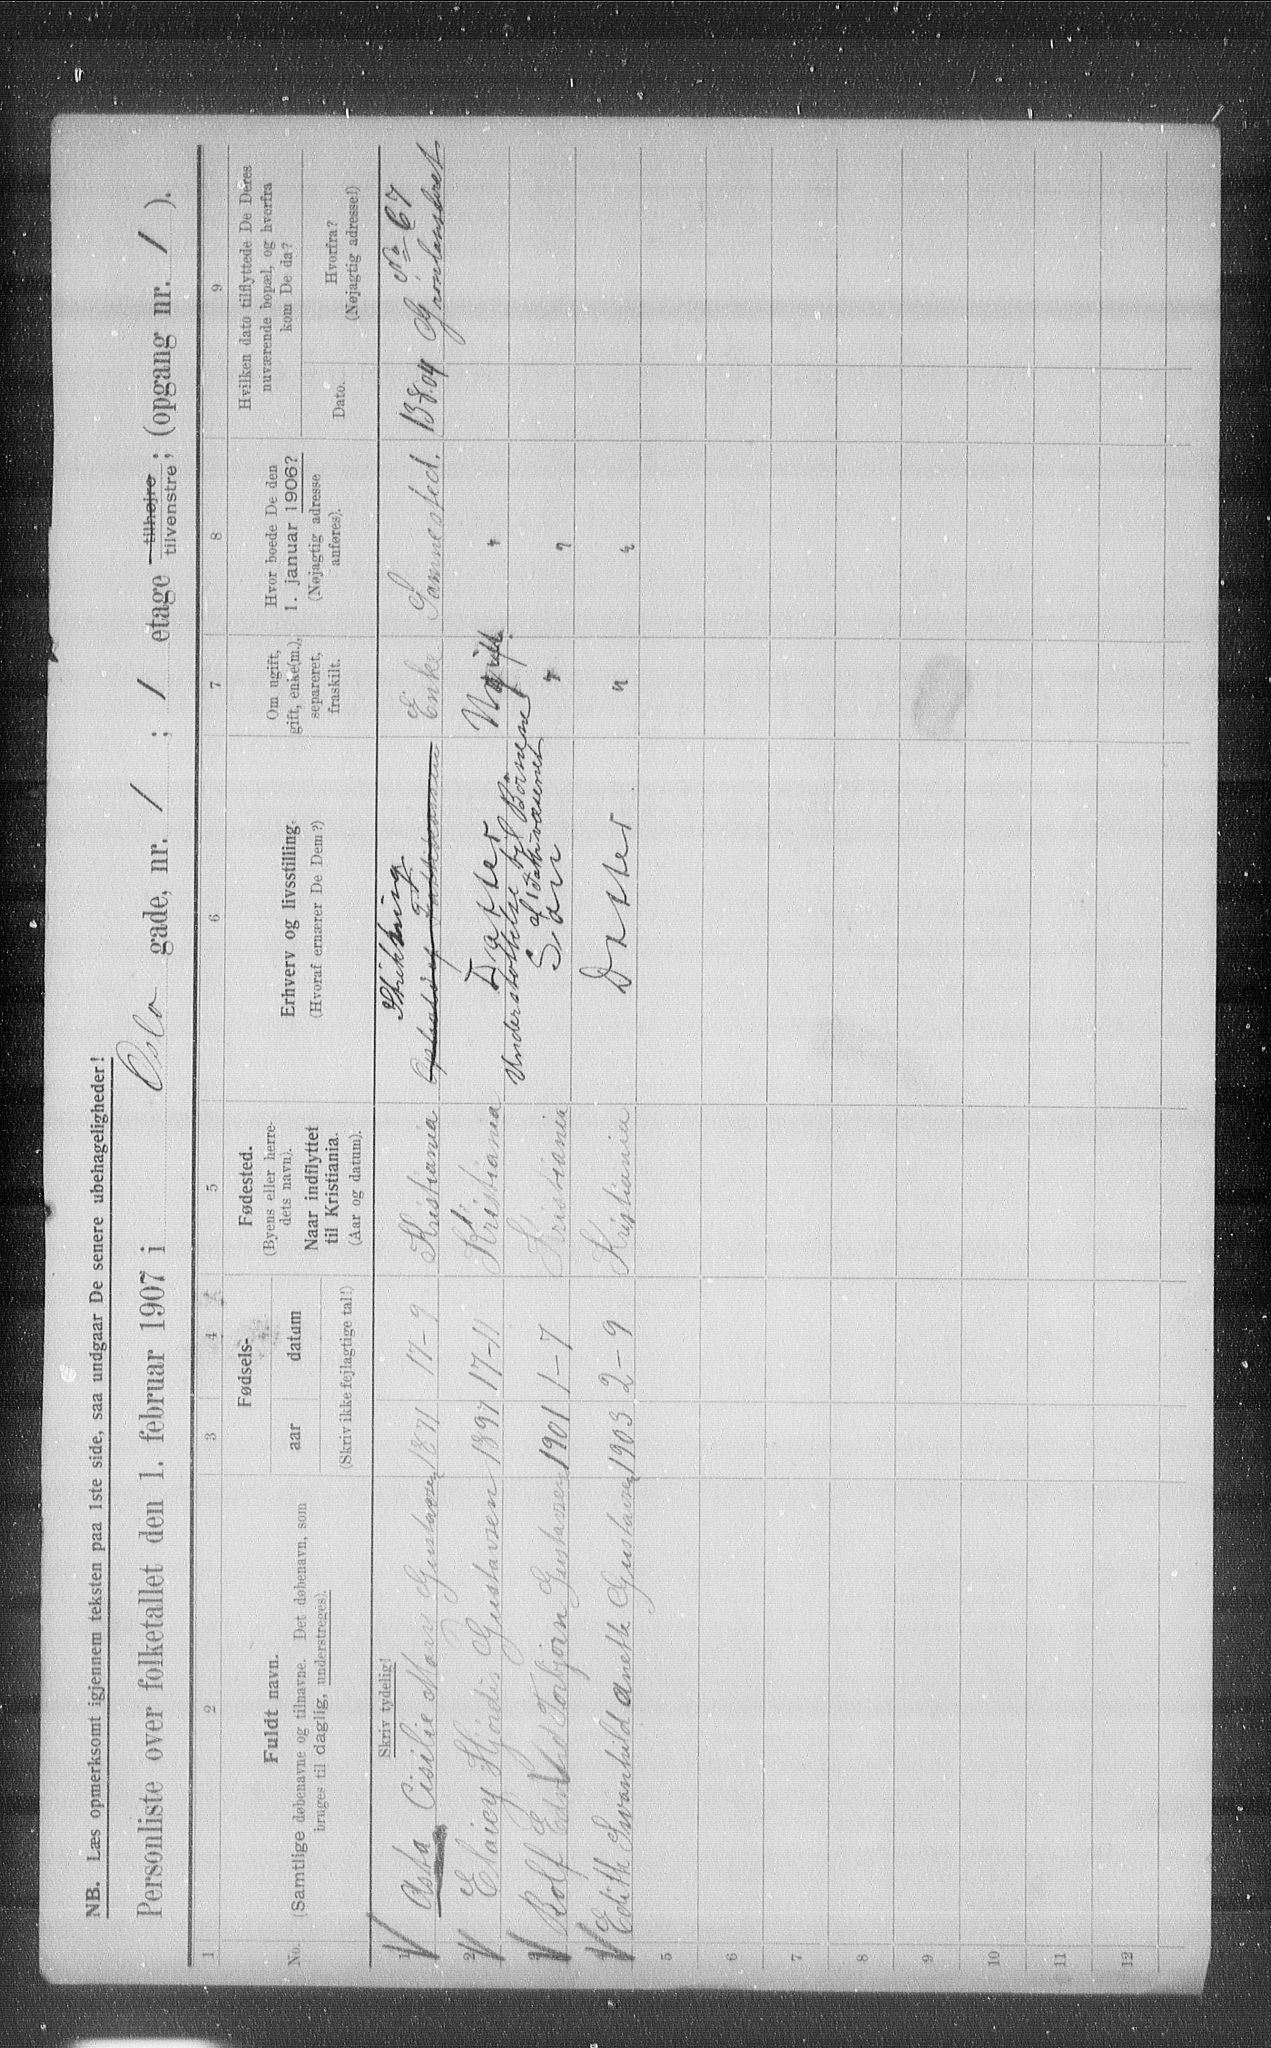 NB. Læs opmerksomt igjennem teksten paa 1ste side, saa undgaar De senere ubehageligheder!
Personliste over folketallet den 1. februar 1907 i Oslo gade, nr. 1 ; 1 etage tilhøjre tilvenstre; (opgang nr. 1 ).
1 2 3 4 5 6 7 8 9
No.
Fuldt navn.
(Samtlige døbenavne og tilnavne. Det døbenavn, som
bruges til daglig, understreges).
Fødsels-
aar datum
(Skriv ikke fejlagtige tal!)
Fødested.
(Byens eller herre-
dets navn).
Naar indflyttet
til Kristiania.
(Aar og datum).
Erhverv og livsstilling.
(Hvoraf ernærer De Dem?)
Om ugift,
gift, enke(m.),
separeret,
fraskilt.
Hvor boede De den
1. januar 1906?
(Nøjagtig adresse
anføres).
Hvilken dato tilflyttede De Deres
nuværende bopæl, og hvorfra
kom De da?
Dato.
Hvorfra?
(Nøjagtig adresse!)
Skriv tydelig!
Strikking No 67
1 Asta Cisilie Marie Gustavsen 1871 17-9 Kristiania Enke Sammested. 13-8.04 Grønlandsleret
2 Hjørdis Gustavsen 1897 17-11 Kristiania Datter Ugift "
Understøttelse til Børnene
af Fattigvæsenet
3 Rolf Torbjørn Gustavsen 1901 1-7 Kristiania Søn " "
4 Edith Svanhild Aneth Gustavsen 1903 2-9 Kristiania Datter " "
5
6
7
8
9
10
11
12